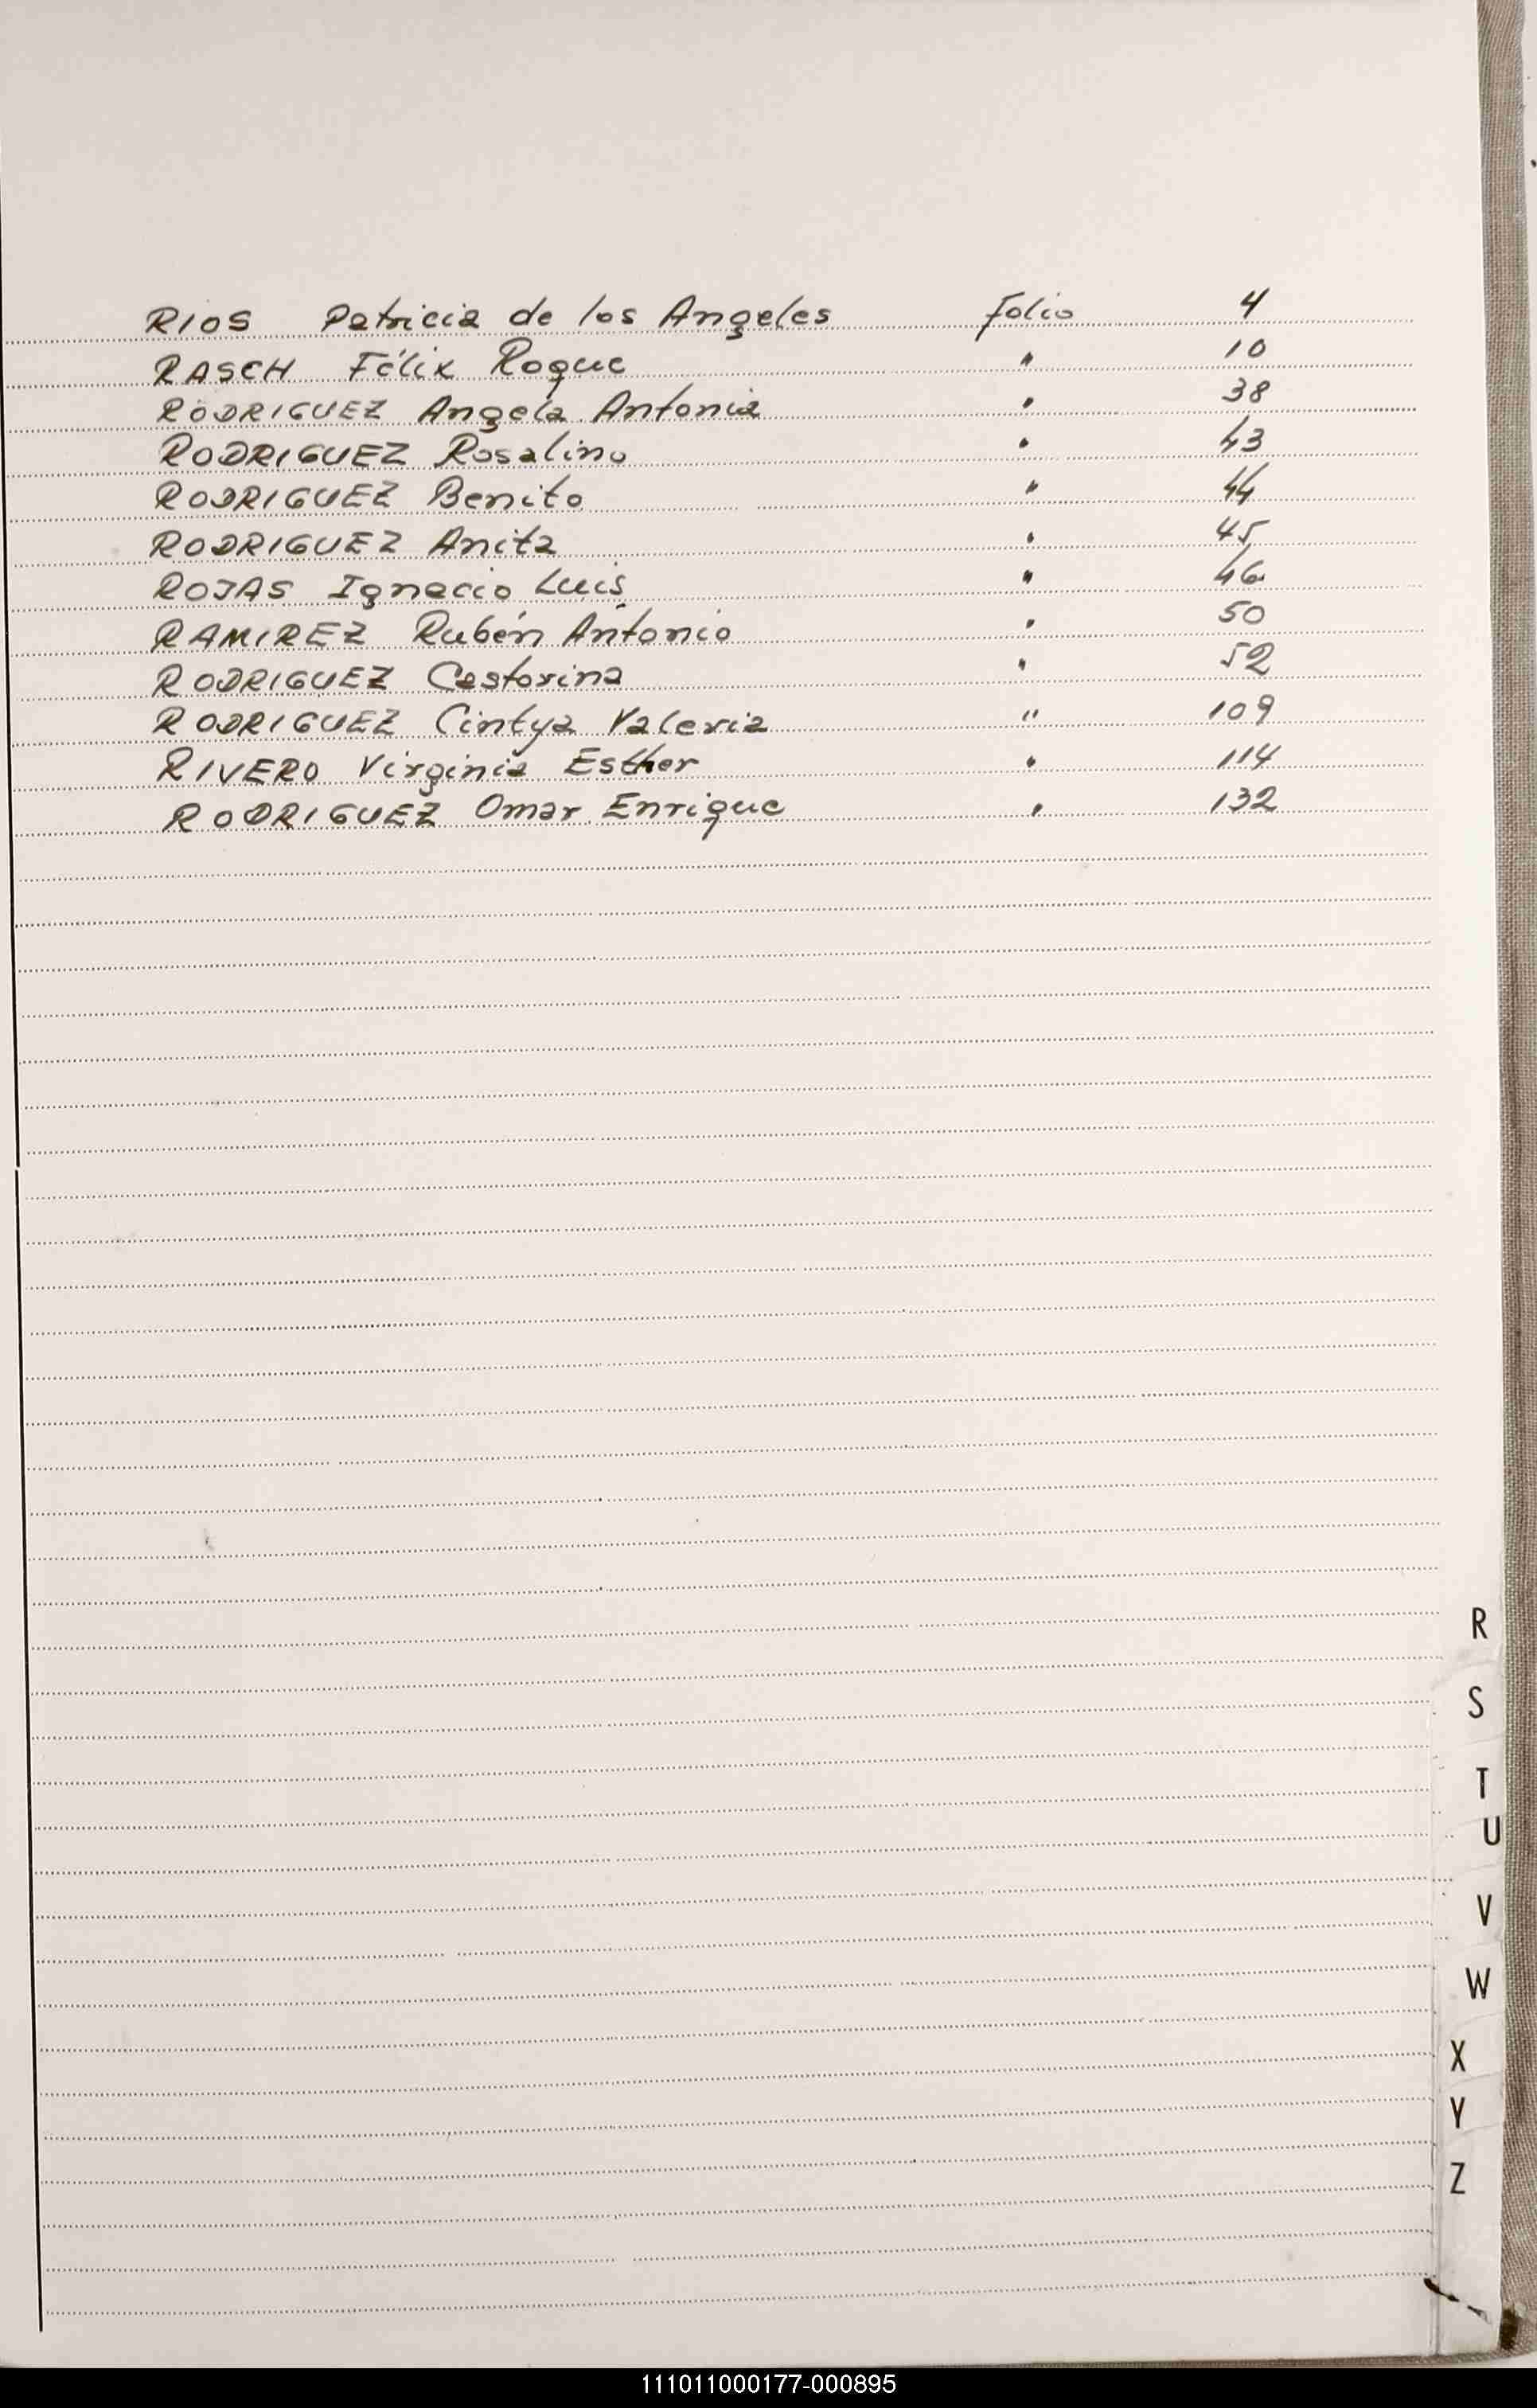 RIOS Patricia de los Angeles Folio 4
RASCH Félix Roque " 10
RODRIGUEZ Angela Antonia " 38
RODRIGUEZ Rosalino " 43
RODRIGUEZ Benito " 44
RODRIGUEZ Anita " 45
ROJAS Ignacio Luis " 46
RAMIREZ Rubén Antonio " 50
RODRIGUEZ Castorina " 52
RODRIGUEZ Cintya Valeria " 109
RIVERO Virginia Esther " 114
RODRIGUEZ Omar Enrique " 132
R
S
T
U
V
W
X
Y
Z
111011000177-000895